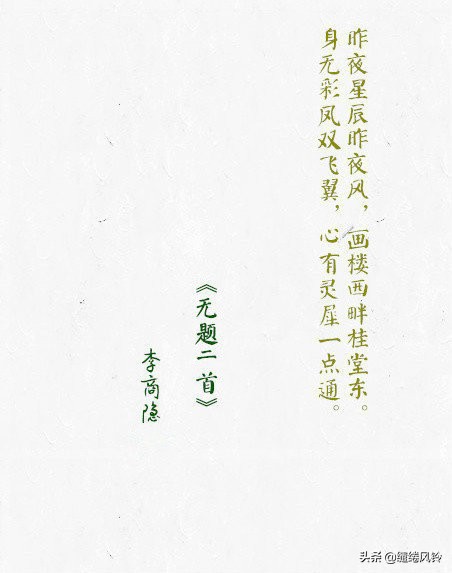 昨夜星辰昨夜风，画楼西畔桂堂东。
身无彩凤双飞翼，心有灵犀一点通。
《无题二首》
李商隐
头条@缱绻风铃